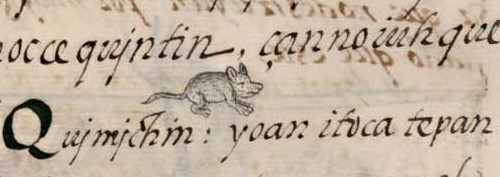 occe qujntin, çan no iuh que
Qujmjchin: yoan itoca tepan